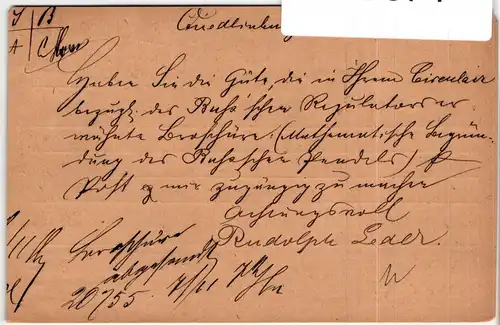 B
A
Quedlinburg
Haben Sie die Güte, die in Ihrem Circulair
bezügl. des schen Regulators er-
wähnte Broschüre (Mathematische Begrün-
dung des schen Pendels) p
Post mir zugängig zu machen
Achtungsvoll
Rudolph Leder.
Broschüre
abgesandt
20755. 7/11